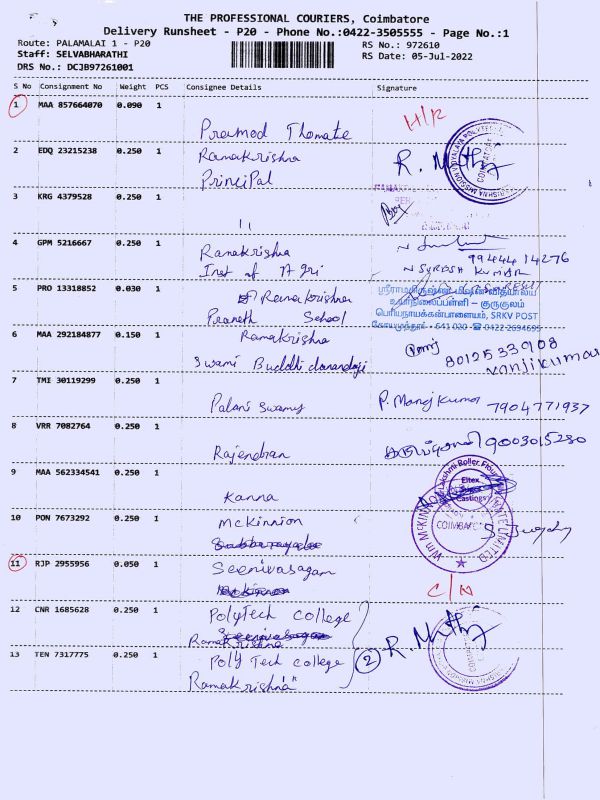 THE PROFESSIONAL COURIERS, Coimbatore
Delivery Runsheet - P20 - Phone No.:0422-3505555 - Page No.:1
Route: PALAMALAI 1 - P20
RS No.: 972610
Staff: SELVABHARATHI
RS Date: 05-Jul-2022
DRS No.: DCJB97261001
S No Consignment No Weight PCS Consignee Details Signature
1 MAA 857664070 0.090 1
H/R
Thomate
2 EDQ 23215238 0.250 1
Ramakrishna
PrinciPal
3 KRG 4379528 0.250 1
11
4 GPM 5216667 0.250 1
Ramakrishna
Inst of
99444 14276
N SURESH KUMAR
5 PRO 13318852 0.030 1
Ramakrishna
School
ஸ்ரீராமகிருஷ்ண மிஷன் வித்யாலய
உயர்நிலைப்பள்ளி - குருகுலம்
பெரியநாயக்கன்பாளையம், SRKV POST
கோயமுத்தூர் - 641 020 ☎ 0422 2694695
6 MAA 292184877 0.150 1
Ramakrishna
Swami
80125 33908
Vanjikumar
7 TMI 30119299 0.250 1
Palani Swamy
P. Manoj Kumar 7904771937
8 VRR 7082764 0.250 1
Rajendran
9003015280
9 MAA 562334541 0.250 1
Kanna
10 PON 7673292 0.250 1
McKinnion
Eltex
Castings
COIMBATORE
11 RJP 2955956 0.050 1
Seenivasagam
C/N
12 CNR 1685628 0.250 1
PolyTech college
Ramakrishna
13 TEN 7317775 0.250 1
Poly Tech college
Ramakrishna
2